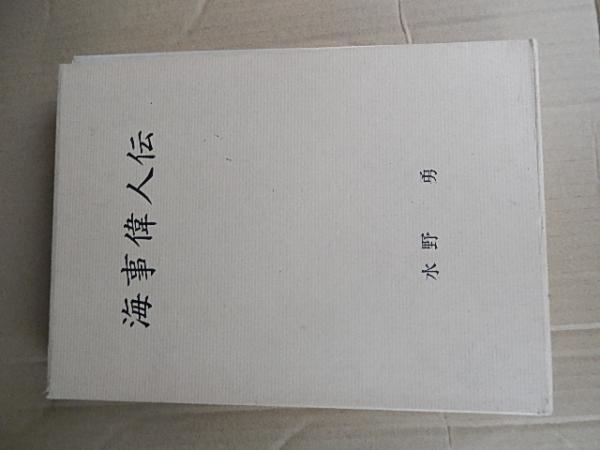 海事偉人伝
水野 勇